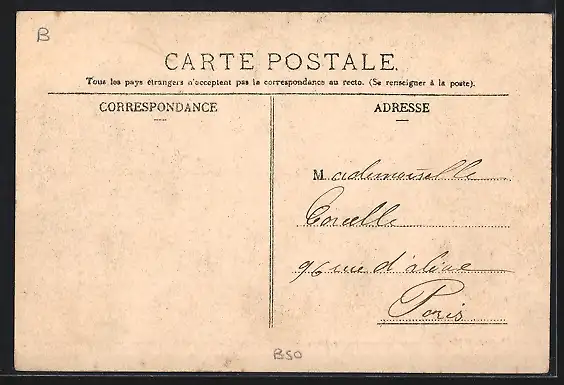 B
CARTE POSTALE.
Tous les pays étrangers n'acceptent pas la correspondance au recto. (Se renseigner à la poste).
CORRESPONDANCE
ADRESSE
Mademoiselle
96 rue d'
Paris
BSO